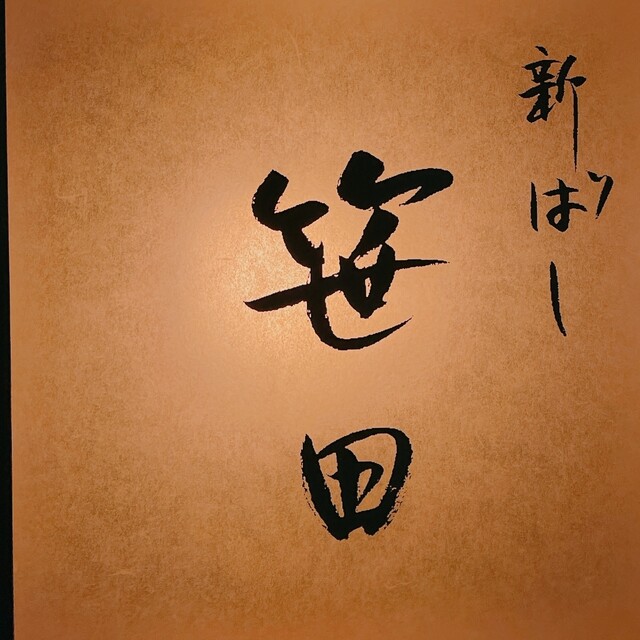 新ばし
笹田